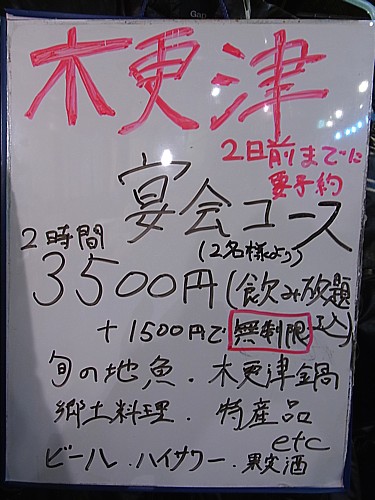 木更津
2日前までに
要予約
宴会コース
(2名様より)
2時間
3500円(飲み放題込)
+1500円で無制限
旬の地魚・木更津鍋
郷土料理・特産品
etc
ビール・ハイサワー・果実酒